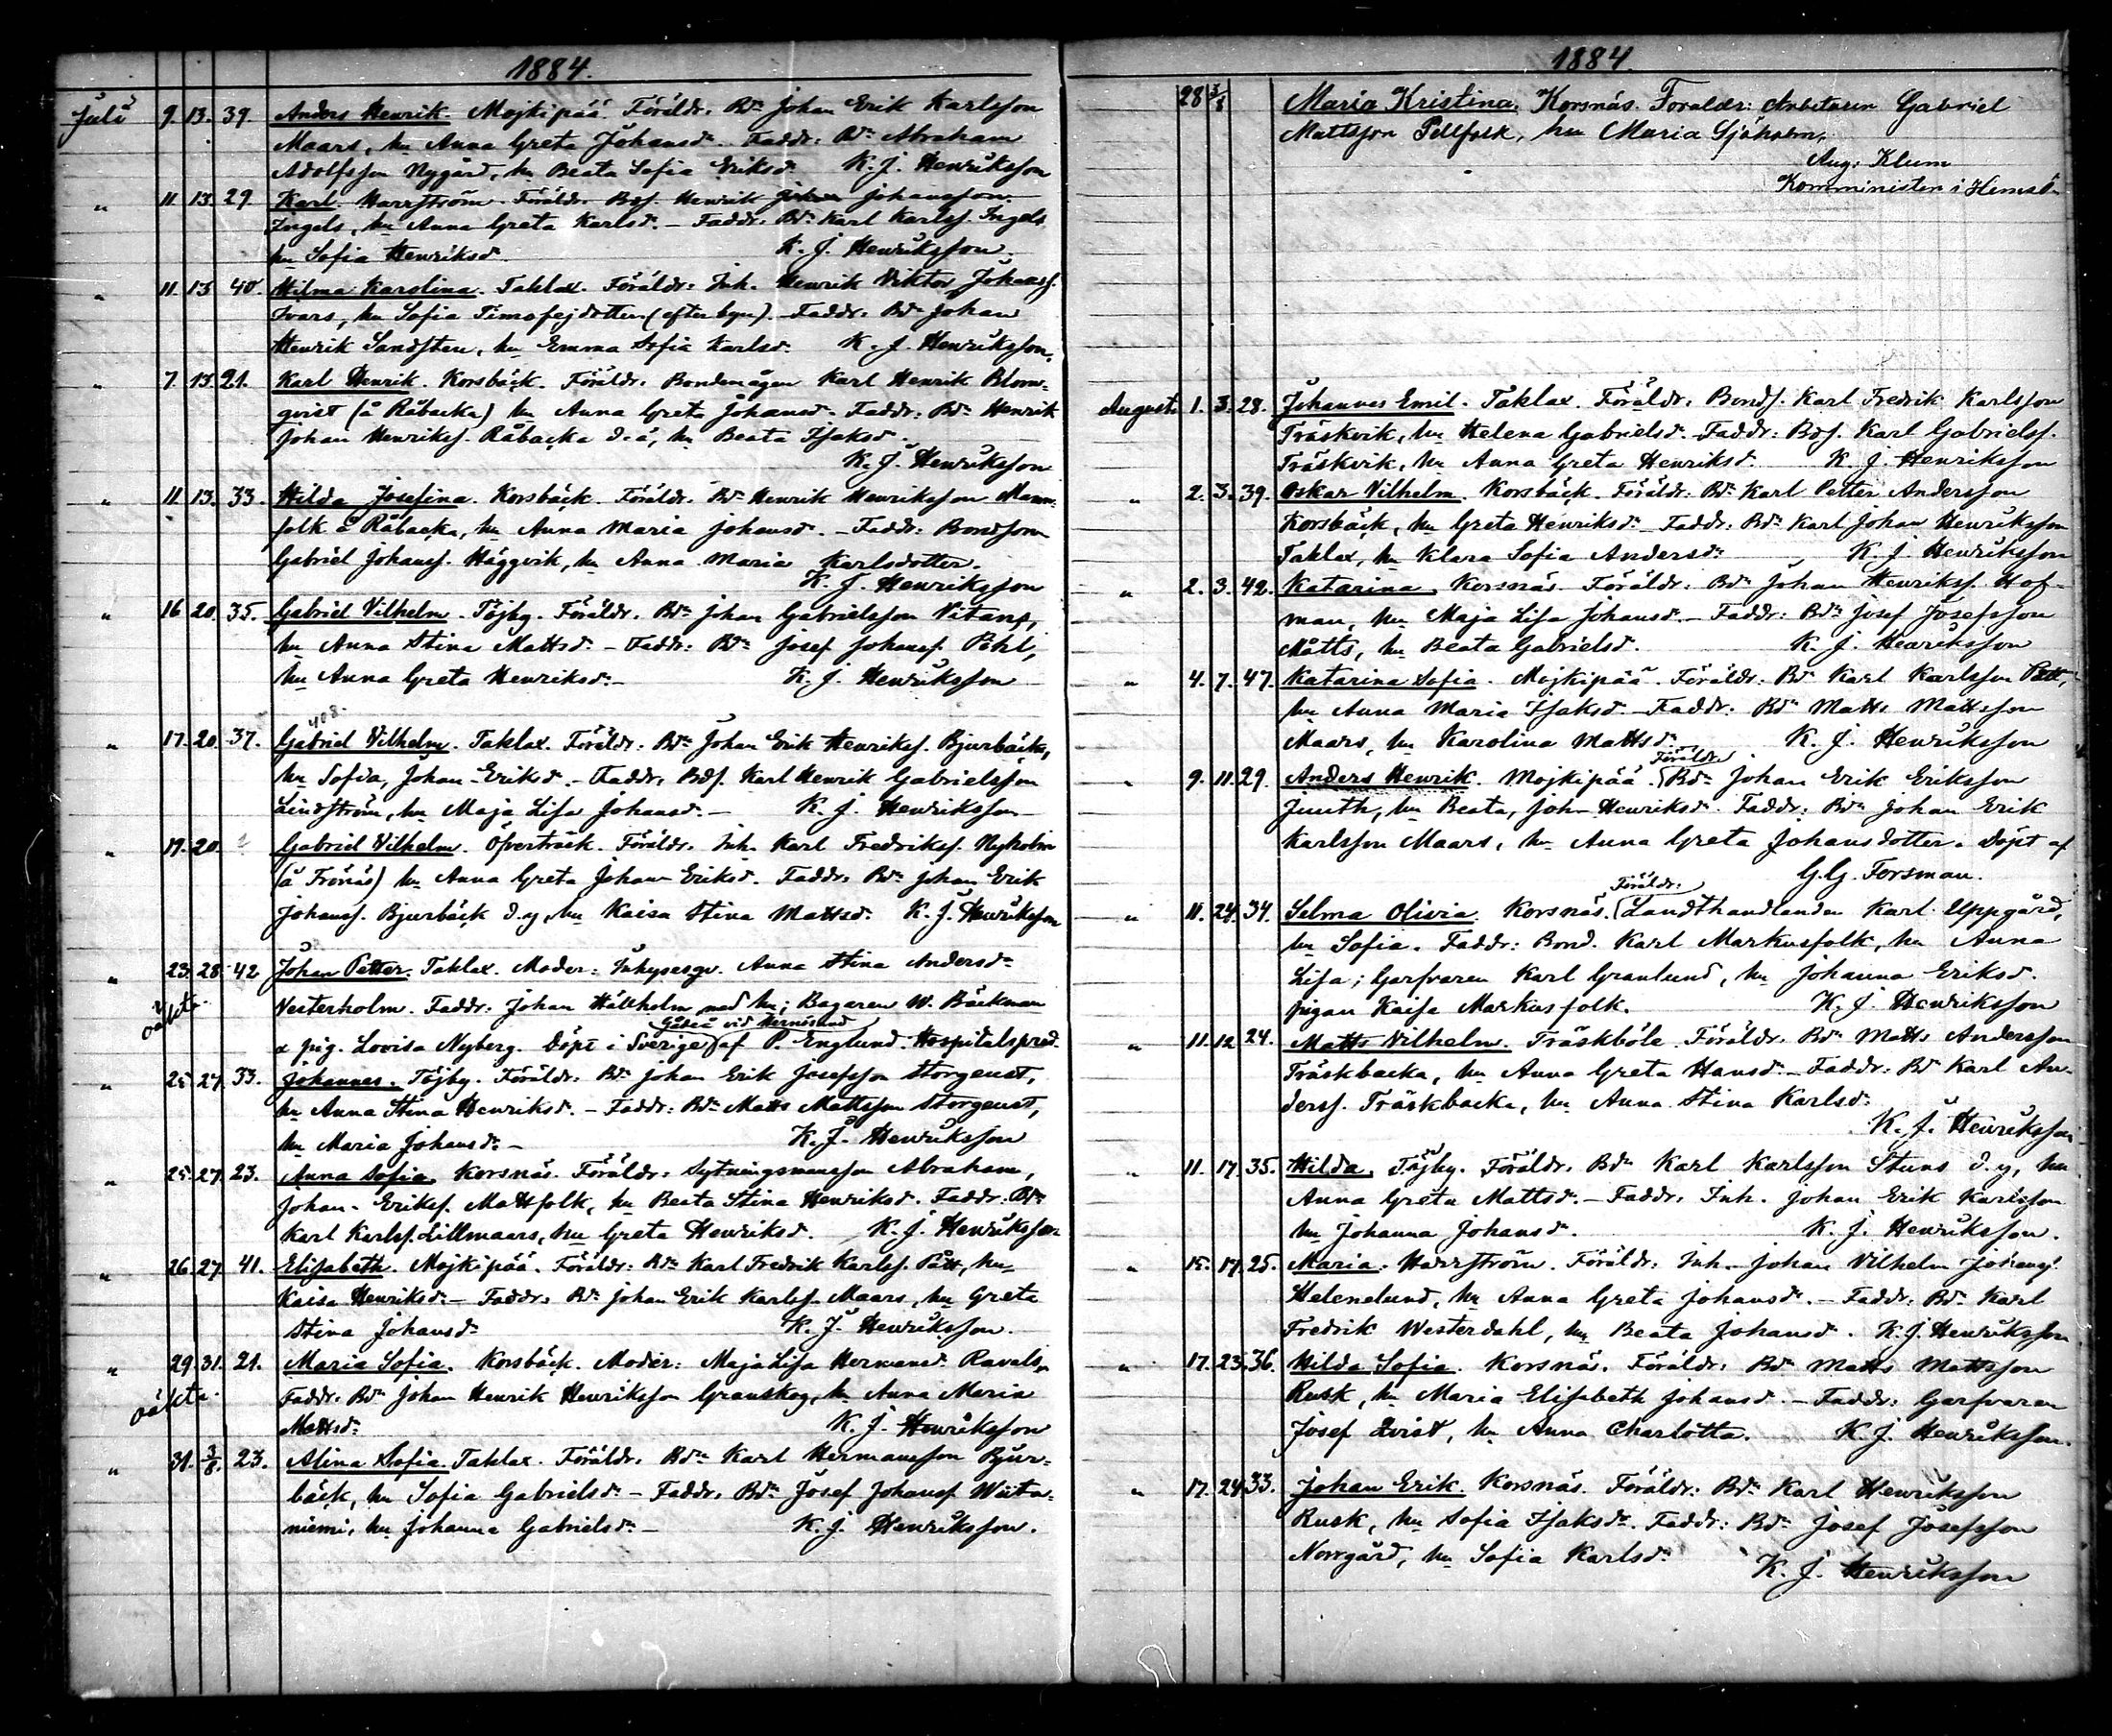 1884.
Juli 9. 13. 39. Anders Henrik. Mojkipää. Föräldr. Bdn Johan Erik Karlsson
Maars, hu Anna Greta Johansdr. Faddr: Bdn Abraham
Adolfsson Nygård, hu Beata Sofia Eriksdr K. J. Henriksson
" 11. 13. 29 Karl. Harrström. Föräldr. Bdsf. Henrik Johansson
Ingels, hu Anna Greta Karlsdr. - Faddr. Bdn Karl Karlsf. Ingels
hu Sofia Henriksdr. K. J. Henriksson.
" 11. 13 40. Hilma Karolina. Taklax. Föräldr: Inh. Henrik Viktor Johansf.
Ivars, hu Sofia Timofejdotter (efter byn). - Faddr: Bdn Johan
Henrik Sandsten, hu Emma Sofia Karlsdr. K. J. Henriksson.
" 7. 13. 21. Karl Henrik. Korsbäck. Föräldr. Bondemågen Karl Henrik Blom-
qvist (å Råbacka) hu Anna Greta Johansdr. Faddr: Bdn Henrik
Johan Henriksf. Råbacka d.ä, hu Beata Isaksdr.
K. J. Henriksson
" 11. 13. 33. Hilda Josefina. Korsbäck. Föräldr. Bdn Henrik Henriksson Mann-
folk å Råbacka, hu Anna Maria Johansdr. - Faddr: Bondson
Gabriel Johansf. Häggvik, hu Anna Maria Karlsdotter.
K. J. Henriksson
" 16 20. 35. Gabriel Vilhelm. Töjby. Föräldr. Bdn Johan Gabrielsson Vitans,
hu Anna Stina Mattsdr. - Faddr: Bdn Josef Johansf. Påhl,
hu Anna Greta Henriksdr. - K. J. Henriksson
408.
" 17. 20. 37. Gabriel Vilhelm. Taklax. Föräldr: Bdn Johan Erik Henriksf. Bjurbäck,
hu Sofia, Johan-Eriksdr. - Faddr. Bdsf. Karl Henrik Gabrielsson
Lindström, hu Maja Lisa Johansdr. - K. J. Henriksson
" 19. 20. Gabriel Vilhelm. Öfverträsk. Föräldr. Inh. Karl Fredriksf. Nyholm
(å Trönäs) hu Anna Greta Johan Eriksdr. Faddr. Bdn Johan Erik
Johansf. Bjurbäck d.y, hu Kaisa Stina Mattsdr. K. J. Henriksson
" 23. 28. 42 Johan Petter. Taklax. Moder: Inhysesqv. Anna Stina Andersdr
oäkta. Vesterholm. Faddr: Johan Hällholm med hu; Bagaren W. Bäckman
Gådeå vid Hernösand
& pig. Lovisa Nyberg. Döpt i Sverige af P. Englund. Hospitalspred.
" 25 27. 33. Johannes. Töjby. Föräldr. Bdn Johan Erik Josefsson Storgeust,
hu Anna Stina Henriksdr. - Faddr: Bdn Matts Mattsson Storgeust,
hu Maria Johansdr. - K. J. Henriksson
" 25. 27. 23. Anna Sofia. Korsnäs. Föräldr. Sytningsmansson Abraham,
Johan-Eriksf. Mattfolk, hu Beata Stina Henriksdr. Faddr: Bdn
Karl Karlsf. Lillmaars, hu Greta Henriksdr. K. J. Henriksson
" 26. 27 41. Elisabeth. Mojkipää. Föräldr: Bdn Karl Fredrik Karlsf. Pått, hu
Kaisa Henriksdr. - Faddr. Bdn Johan Erik Karlsf. Maars, hu Greta
Stina Johansdr K. J. Henriksson.
" 29 31. 21. Maria Sofia. Korsbäck. Moder: Maja Lisa Hermansdr Ravals,
oäkta. Faddr. Bdn Johan Henrik Henriksson Granskog, hu Anna Maria
Mattsdr: K. J. Henriksson
" 31. 3/8. 23. Alina Sofia. Taklax. Föräldr. Bdn Karl Hermansson Bjur-
bäck, hu Sofia Gabrielsdr. - Faddr. Bdn Josef Johansf. Wiita-
niemi, hu Johanna Gabrielsdr. - K. J. Henriksson.
1884.
28 3/8 Maria Kristina. Korsnäs. Föräldr: Arbetaren Gabriel
Mattsson Pellfolk, hu Maria Sjöholm,
Aug. Klum
Komminister i Hemsö
Augusti 1. 3. 28. Johannes Emil. Taklax. Föräldr. Bondf. Karl Fredrik Karlsson
Träskvik, hu Helena Gabrielsdr. - Faddr: Bdsf. Karl Gabrielsf.
Träskvik, hu Anna Greta Henriksdr. K. J. Henriksson
" 2. 3. 39. Oskar Vilhelm. Korsbäck. Föräldr: Bdn Karl Petter Andersson
Korsbäck, hu Greta Henriksdr. - Faddr: Bdn Karl Johan Henriksson
Taklax, hu Klara Sofia Andersdr: K. J. Henriksson
" 2. 3. 42. Katarina. Korsnäs. Föräldr: Bdn Johan Henriksf. Hof-
man, hu Maja Lisa Johansdr. - Faddr: Bdn Josef Josefsson
Mätts, hu Beata Gabrielsdr. K. J. Henriksson
" 4. 7. 47. Katarina Sofia. Mojkipää. Föräldr: Bdn Karl Karlsson Pått,
hu Anna Maria Isaksdr. - Faddr: Bdn Matts Mattsson
Maars, hu Karolina Mattsdr. K. J. Henriksson
Föräldr.
" 9. 11. 29. Anders Henrik. Mojkipää. Bdn Johan Erik Eriksson
Juuth, hu Beata, Joh-Henriksdr. Faddr: Bdn Johan Erik
Karlsson Maars, hu Anna Greta Johansdotter. Döpt af
G. G. Forsman.
Föräldr:
" 11. 24. 34. Selma Olivia. Korsnäs. Landthandlanden Karl Uppgård,
hu Sofia. Faddr: Bond. Karl Markusfolk, hu Anna
Lisa; Garfvaren Karl Granlund, hu Johanna Eriksdr.
pigan Kaisa Markusfolk. K. J. Henriksson
" 11. 12 24. Matts Vilhelm. Träskböle. Föräldr. Bdn Matts Andersson
Träskbacka, hu Anna Greta Hansdr. - Faddr: Bdn Karl An-
dersf. Träskbacka, hu Anna Stina Karlsdr:
K. J. Henriksson
" 11. 17. 35. Hilda. Töjby. Föräldr. Bdn Karl Karlsson Stuns d.y, hu
Anna Greta Mattsdr. - Faddr. Inh. Johan Erik Karlsson
hu Johanna Johansdr. K. J. Henriksson.
" 15. 17. 25. Maria. Harrström. Föräldr. Inh. Johan Vilhelm Johansf.
Helenelund, hu Anna Greta Johansdr. - Faddr: Bdn Karl
Fredrik Westerdahl, hu Beata Johansdr. K. J. Henriksson
" 17. 23. 36. Hilda Sofia. Korsnäs. Föräldr: Bdn Matts Mattsson
Rusk, hu Maria Elisabeth Johansdr. - Faddr: Garfvaren
Josef Qvist, hu Anna Charlotta. K. J. Henriksson.
" 17. 24 33. Johan Erik. Korsnäs. Föräldr: Bdn Karl Henriksson
Rusk, hu Sofia Isaksdr. Faddr: Bdn Josef Josefsson
Norrgård, hu Sofia Karlsdr: K. J. Henriksson